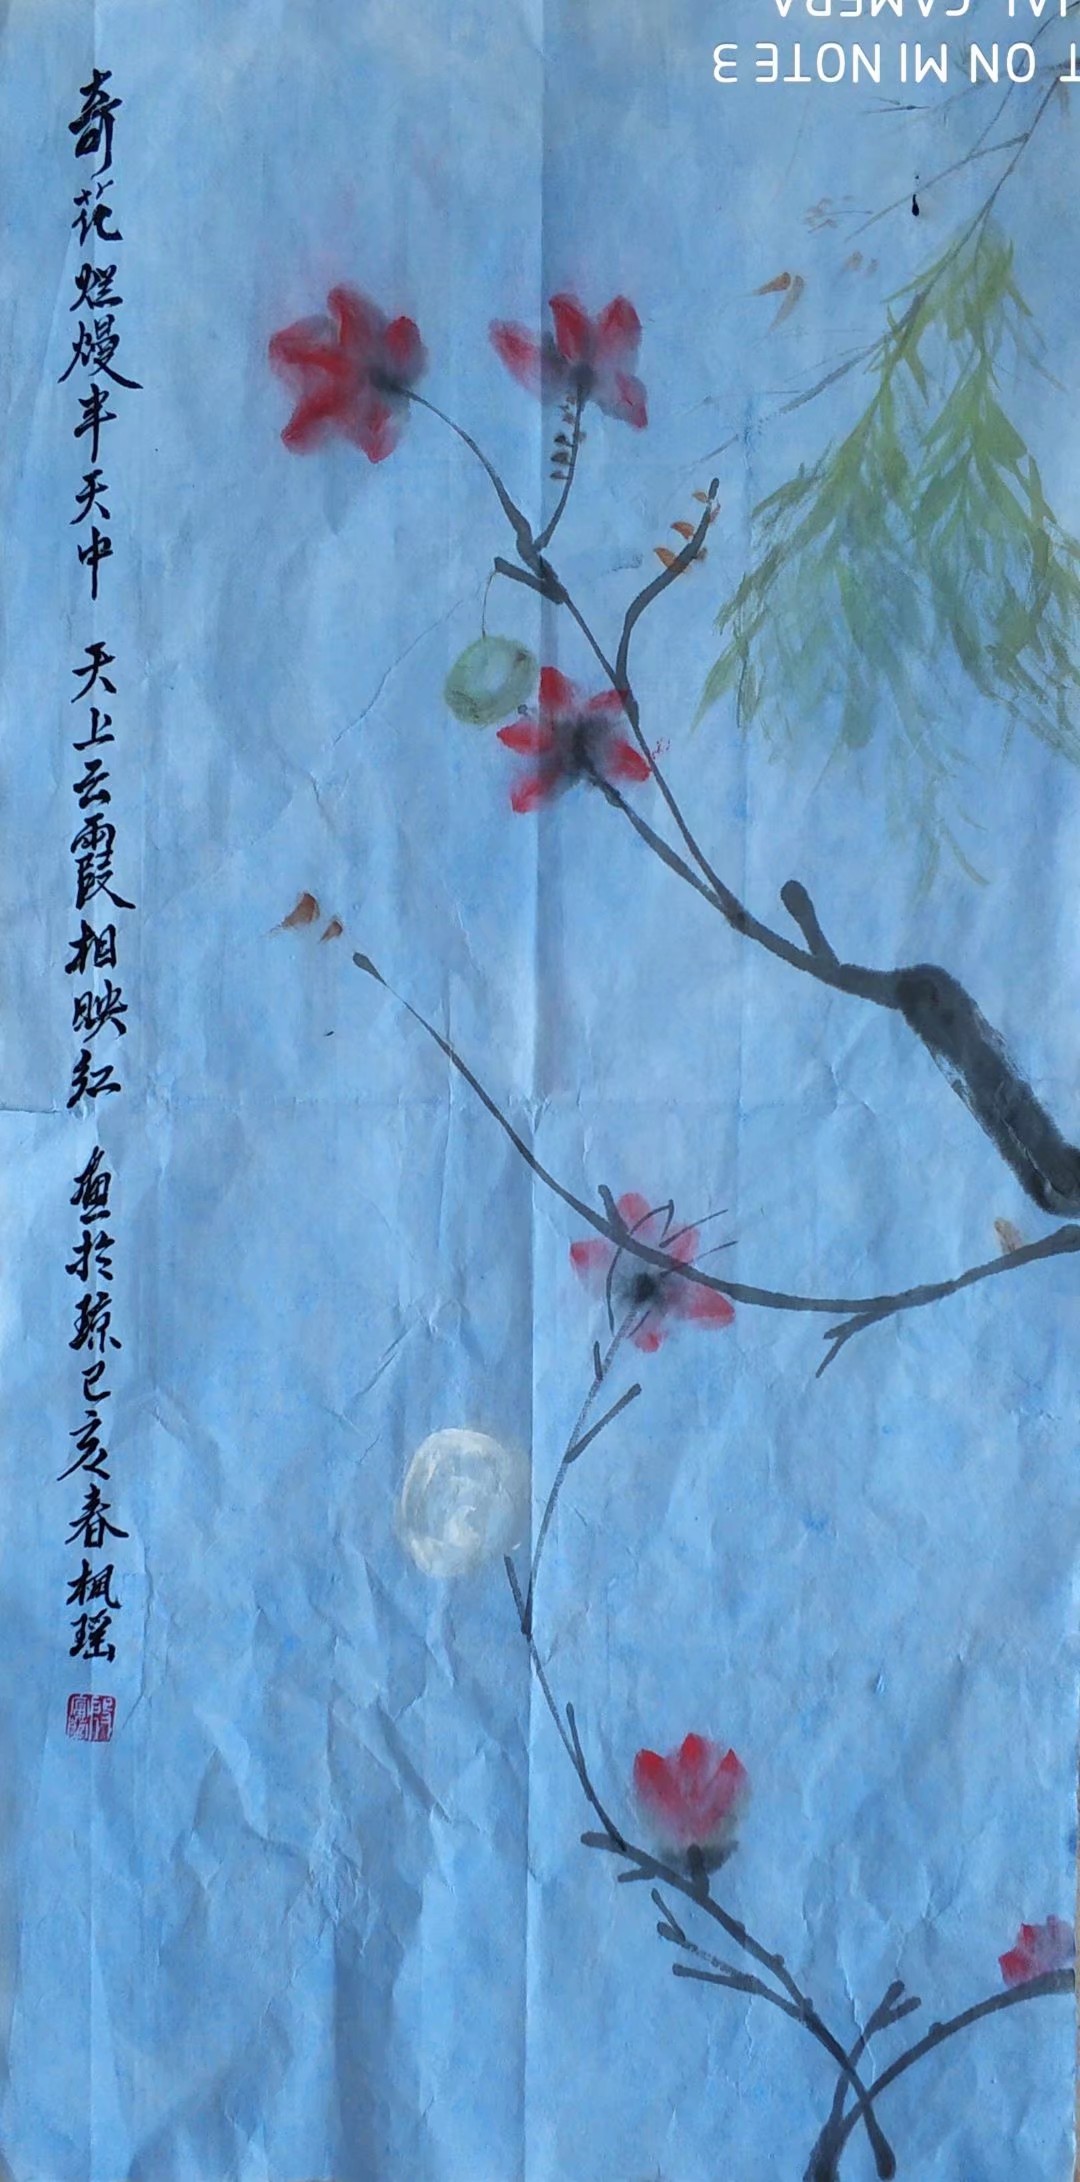 奇花烂熳半天中 天上云霞相映红 画於琼己亥春枫瑶
T ON MI NOTE 3
IAL CAMERA